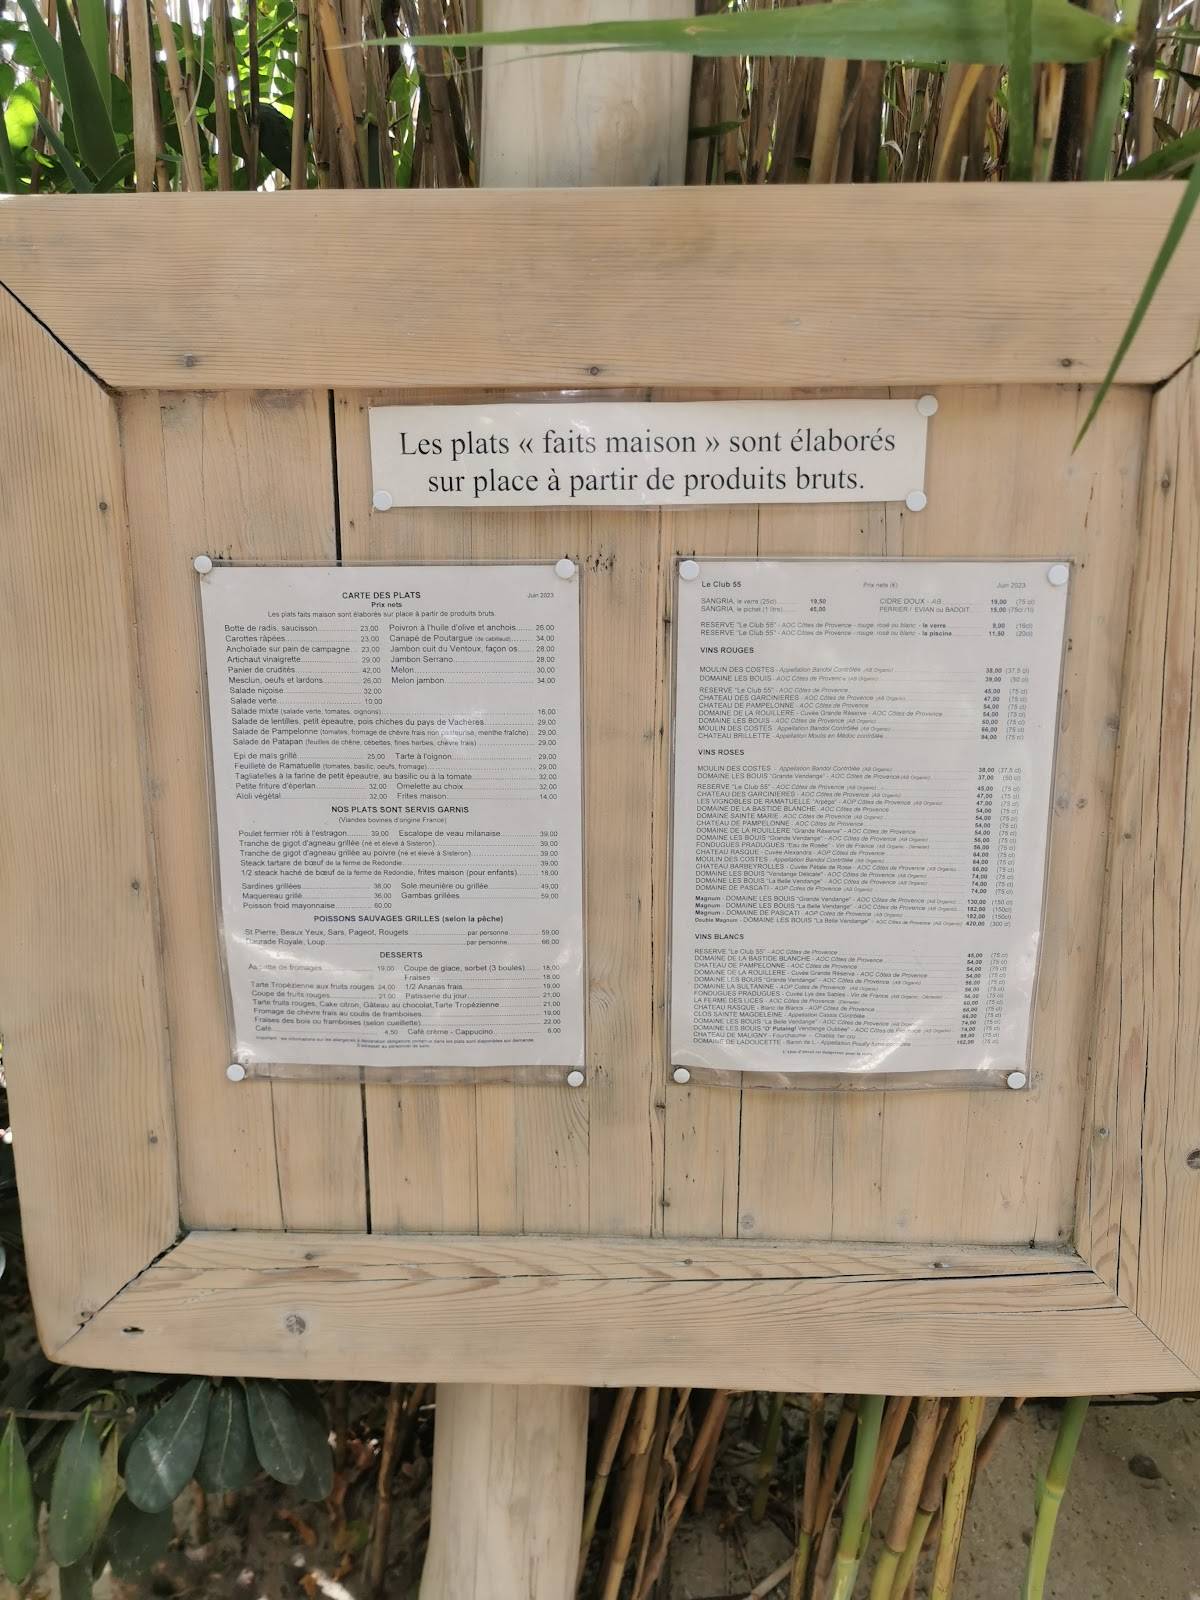 Les plats « faits maison » sont élaborés
sur place à partir de produits bruts.
CARTE DES PLATS
Juin 2023
Prix nets
Les plats faits maison sont élaborés sur place à partir de produits bruts.
Botte de radis, saucisson 23,00 Poivron à l'huile d'olive et anchois 26,00
Carottes râpées 23,00 Canapé de Poutargue (de cabillaud) 34,00
Anchoïade sur pain de campagne 23,00 Jambon cuit du Ventoux, façon os 28,00
Artichaut vinaigrette 29,00 Jambon Serrano 28,00
Panier de crudités 42,00 Melon 30,00
Mesclun, oeufs et lardons 26,00 Melon jambon 34,00
Salade niçoise 32,00
Salade verte 10,00
Salade mixte (salade verte, tomates, oignons) 16,00
Salade de lentilles, petit épeautre, pois chiches du pays de Vachères 29,00
Salade de Pampelonne (tomates, fromage de chèvre frais non pasteurisé, menthe fraîche) 29,00
Salade de Patapan (feuilles de chêne, cébettes, fines herbes, chèvre frais) 29,00
Epi de maïs grillé 25,00 Tarte à l'oignon 29,00
Feuilleté de Ramatuelle (tomates, basilic, oeufs, fromage) 29,00
Tagliatelles à la farine de petit épeautre, au basilic ou à la tomate 32,00
Petite friture d'éperlan 32,00 Omelette au choix 32,00
Aïoli végétal 32,00 Frites maison 14,00
NOS PLATS SONT SERVIS GARNIS
(Viandes bovines d'origine France)
Poulet fermier rôti à l'estragon 39,00 Escalope de veau milanaise 39,00
Tranche de gigot d'agneau grillée (né et élevé à Sisteron) 39,00
Tranche de gigot d'agneau au poivre (né et élevé à Sisteron) 39,00
Steack tartare de bœuf de la ferme de Redondie 39,00
1/2 steack haché de bœuf de la ferme de Redondie, frites maison (pour enfants) 18,00
Sardines grillées 38,00 Sole meunière ou grillée 49,00
Maquereau grillé 36,00 Gambas grillées 59,00
Poisson froid mayonnaise 60,00
POISSONS SAUVAGES GRILLES (selon la pêche)
St Pierre, Beaux Yeux, Sars, Pageot, Rougets par personne 59,00
Daurade Royale, Loup par personne 66,00
DESSERTS
Assiette de fromages 19,00 Coupe de glace, sorbet (3 boules) 18,00
Fraises 18,00
Tarte Tropézienne aux fruits rouges 24,00 1/2 Ananas frais 19,00
Coupe de fruits rouges 21,00 Patisserie du jour 21,00
Tarte fruits rouges, Cake citron, Gâteau au chocolat,Tarte Tropézienne 21,00
Fromage de chèvre frais au coulis de framboises 19,00
Fraises des bois ou framboises (selon cueillette) 22,00
Café 4,50 Café crème - Cappucino 6,00
Le Club 55 Prix nets (€) Juin 2023
SANGRIA, le verre (25cl) 19,50 CIDRE DOUX - AB 19,00 (75 cl)
SANGRIA, le pichet (1 litre) 45,00 PERRIER / EVIAN ou BADOIT 15,00 (75cl/1l)
RESERVE "Le Club 55" - AOC Côtes de Provence - rouge, rosé ou blanc - le verre 9,00 (16cl)
RESERVE "Le Club 55" - AOC Côtes de Provence - rouge, rosé ou blanc - la piscine 11,50 (20cl)
VINS ROUGES
MOULIN DES COSTES - Appellation Bandol Contrôlée (AB Organic) 38,00 (37,5 cl)
DOMAINE LES BOUIS - AOC Côtes de Provence (AB Organic) 39,00 (50 cl)
RESERVE "Le Club 55" - AOC Côtes de Provence 45,00 (75 cl)
CHATEAU DES GARCINIERES - AOC Côtes de Provence (AB Organic) 47,00 (75 cl)
CHATEAU DE PAMPELONNE - AOC Côtes de Provence 54,00 (75 cl)
DOMAINE DE LA ROUILLERE - Cuvée Grande Réserve - AOC Côtes de Provence 54,00 (75 cl)
DOMAINE LES BOUIS - AOC Côtes de Provence (AB Organic) 60,00 (75 cl)
MOULIN DES COSTES - Appellation Bandol Contrôlée (AB Organic) 66,00 (75 cl)
CHATEAU BRILLETTE - Appellation Moulis en Médoc contrôlée 94,00 (75 cl)
VINS ROSES
MOULIN DES COSTES - Appellation Bandol Contrôlée (AB Organic) 38,00 (37,5 cl)
DOMAINE LES BOUIS "Grande Vendange" - AOC Côtes de Provence (AB Organic) 37,00 (50 cl)
RESERVE "Le Club 55" - AOC Côtes de Provence 45,00 (75 cl)
CHATEAU DES GARCINIERES - AOC Côtes de Provence (AB Organic) 47,00 (75 cl)
LES VIGNOBLES DE RAMATUELLE "Arpège" - AOP Côtes de Provence (AB Organic) 47,00 (75 cl)
DOMAINE DE LA BASTIDE BLANCHE - AOC Côtes de Provence 54,00 (75 cl)
DOMAINE SAINTE MARIE - AOC Côtes de Provence (AB Organic) 54,00 (75 cl)
CHATEAU DE PAMPELONNE - AOC Côtes de Provence 54,00 (75 cl)
DOMAINE DE LA ROUILLERE "Grande Réserve" - AOC Côtes de Provence 54,00 (75 cl)
DOMAINE LES BOUIS "Grande Vendange" - AOC Côtes de Provence (AB Organic) 56,00 (75 cl)
FONDUGUES PRADUGUES "Eau de Rosée" - Vin de France 56,00 (75 cl)
CHATEAU RASQUE - Cuvée Alexandra - AOP Côtes de Provence 64,00 (75 cl)
MOULIN DES COSTES - Appellation Bandol Contrôlée (AB Organic) 64,00 (75 cl)
CHATEAU BARBEYROLLES - Cuvée Pétale de Rose - AOC Côtes de Provence (AB Organic) 66,00 (75 cl)
DOMAINE LES BOUIS "Vendange Délicate" - AOC Côtes de Provence (AB Organic) 74,00 (75 cl)
DOMAINE LES BOUIS "La Belle Vendange" - AOC Côtes de Provence (AB Organic) 74,00 (75 cl)
DOMAINE DE PASCATI - AOP Côtes de Provence (AB Organic) 74,00 (75 cl)
Magnum - DOMAINE LES BOUIS "Grande Vendange" - AOC Côtes de Provence (AB Organic) 130,00 (150 cl)
Magnum - DOMAINE LES BOUIS "La Belle Vendange" - AOC Côtes de Provence (AB Organic) 182,00 (150cl)
Magnum - DOMAINE DE PASCATI - AOP Côtes de Provence (AB Organic) 182,00 (150cl)
Double Magnum - DOMAINE LES BOUIS "La Belle Vendange" - AOC Côtes de Provence (AB Organic) 420,00 (300 cl)
VINS BLANCS
RESERVE "Le Club 55" - AOC Côtes de Provence 45,00 (75 cl)
DOMAINE DE LA BASTIDE BLANCHE - AOC Côtes de Provence 54,00 (75 cl)
CHATEAU DE PAMPELONNE - AOC Côtes de Provence 54,00 (75 cl)
DOMAINE DE LA ROUILLERE - Cuvée Grande Réserve - AOC Côtes de Provence 54,00 (75 cl)
DOMAINE LES BOUIS "Grande Vendange" - AOC Côtes de Provence (AB Organic) 56,00 (75 cl)
DOMAINE LA SULTANINE - AOP Côtes de Provence (AB Organic) 56,00 (75 cl)
FONDUGUES PRADUGUES - Cuvée Lys des Sables - Vin de France 56,00 (75 cl)
LA FERME DES LICES - AOC Côtes de Provence 60,00 (75 cl)
CHATEAU RASQUE - Blanc de Blancs - AOP Côtes de Provence 66,00 (75 cl)
CLOS SAINTE MAGDELEINE - Appellation Cassis Contrôlée 66,00 (75 cl)
DOMAINE LES BOUIS "La Belle Vendange" - AOC Côtes de Provence 74,00 (75 cl)
DOMAINE LES BOUIS "O' Putaing! Vendange Oubliée" - AOC Côtes de Provence 74,00 (75 cl)
CHATEAU DE MALIGNY - Fourchaume - Chablis 1er cru 88,00 (75 cl)
DOMAINE DE LADOUCETTE - Baron de L - Appellation Pouilly fumé contrôlée 162,00 (75 cl)